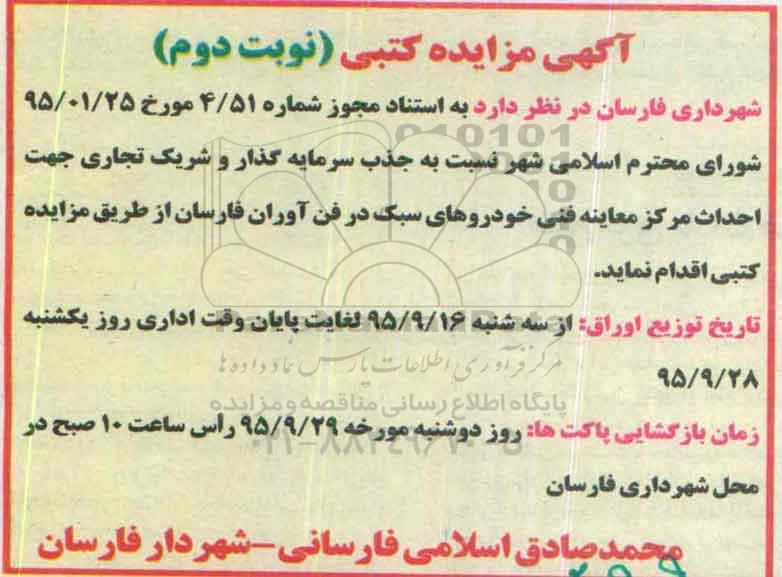 آگهی مزایده کتبی (نوبت دوم)
شهرداری فارسان در نظر دارد به استناد مجوز شماره ۴/۵۱ مورخ ۹۵/۰۱/۲۵
شورای محترم اسلامی شهر نسبت به جذب سرمایه گذار و شریک تجاری جهت
احداث مرکز معاینه فنی خودروهای سبک در فن آوران فارسان از طریق مزایده
کتبی اقدام نماید.
تاریخ توزیع اوراق: از سه شنبه ۹۵/۹/۱۶ لغایت پایان وقت اداری روز یکشنبه
۹۵/۹/۲۸
مرکز فرآوری اطلاعات پارس نماد داده ها
پایگاه اطلاع رسانی مناقصه و مزایده
زمان بازگشایی پاکت ها: روز دوشنبه مورخه ۹۵/۹/۲۹ راس ساعت ۱۰ صبح در
محل شهرداری فارسان
محمدصادق اسلامی فارسانی-شهردار فارسان